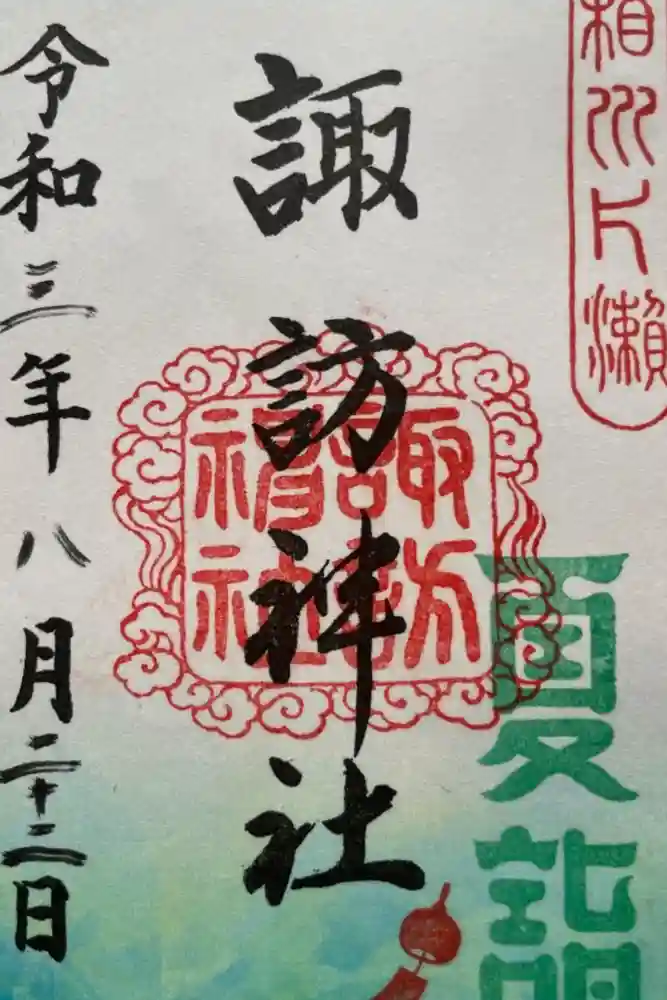 相州片瀬
夏詣
諏訪神社
諏訪
神社
令和三年八月二十二日